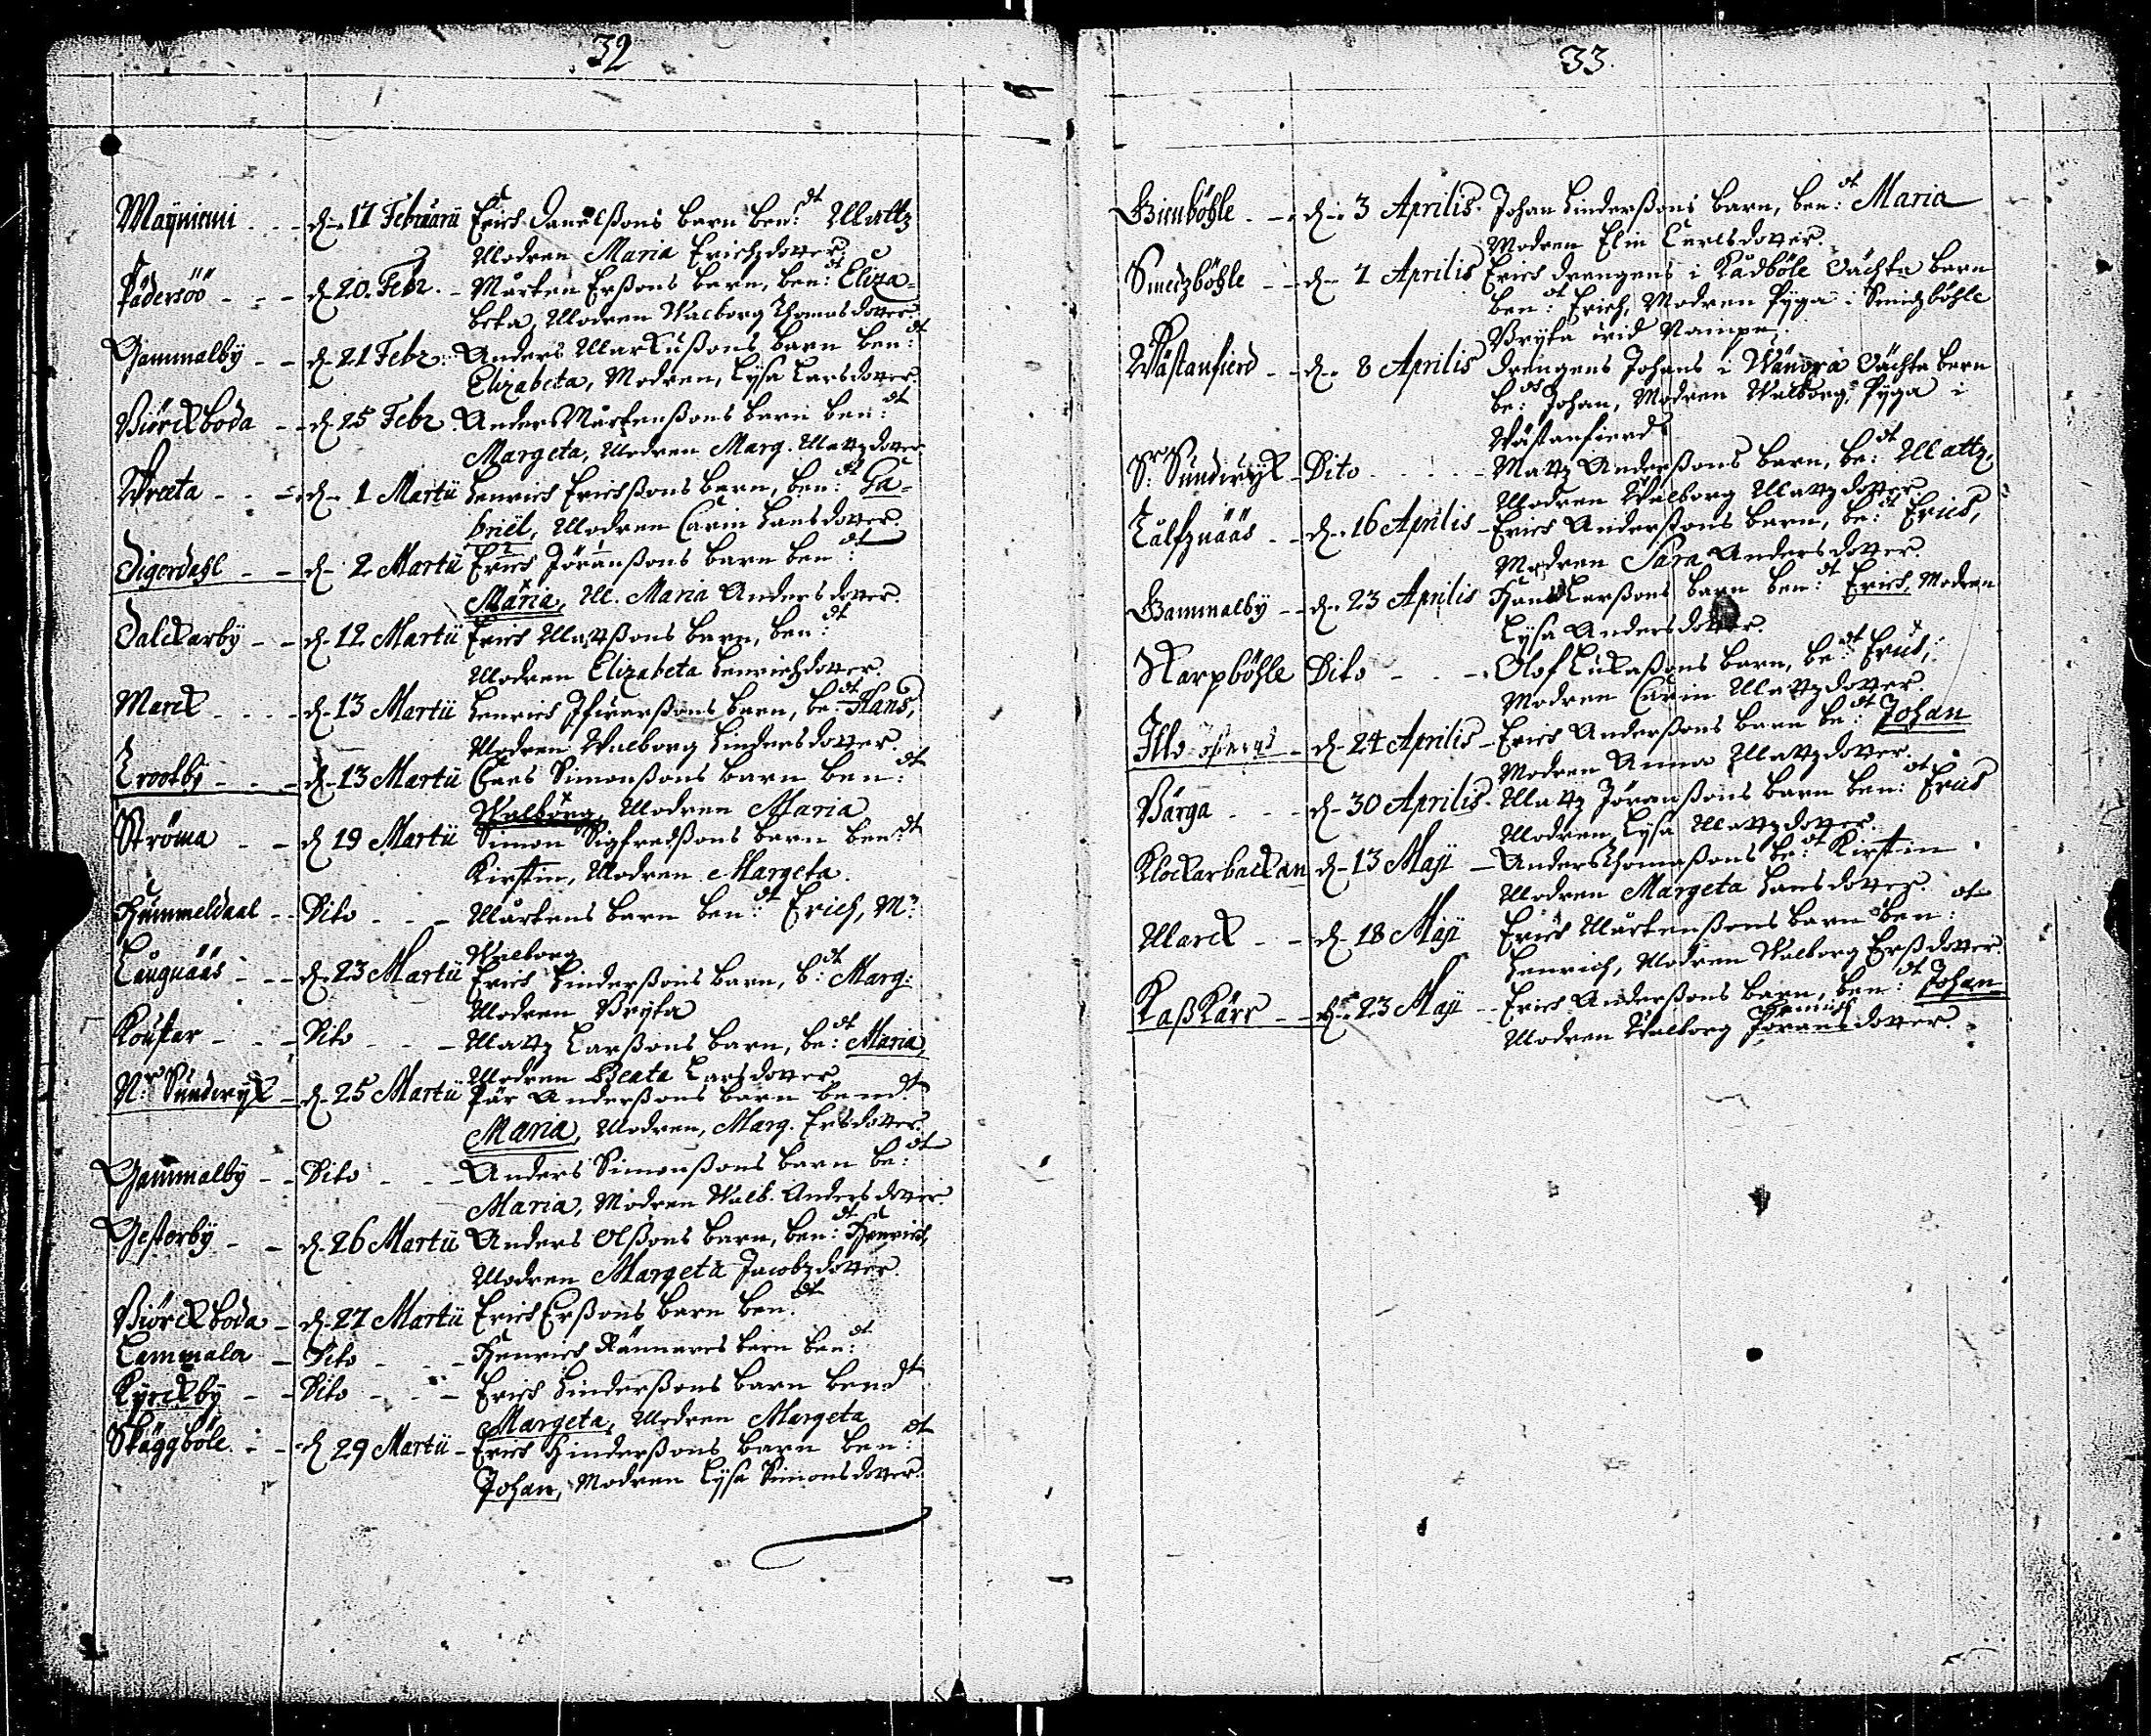 32
Maÿnirmi - - - d. 17 Februarii Erich Danelßons barn ben:dt Mattz
Modren Maria Erichzdotter,
Pädersöö - - - d. 20. Febr. - Mårten Erßons barn, ben:dt Eliza=
beta, Modren Walborg Thomasdotter.
Gammalbÿ - - d. 21 Febr: Anders Markußons barn ben:dt
Elizabeta, Modren, Lÿsa Larsdotter.
Biörckboda - - d. 25 Febr. Anders Mårtenßons barn ben:dt
Margeta, Modren Marg. Mattzdotter
Wreeta - - - d. 1 Martii Henrich Erichßons barn, ben:dt Ga=
briel, Modren Carin Hansdotter.
Digerdahl - - d. 2 Martii Erich Jöranßons barn ben:dt
Maria, M. Maria Andersdotter.
Dalckarbÿ - - d. 12 Martii Erich Mattßons barn, ben:dt
Modren Elizabeta Henrichdotter.
Marck - - - - d. 13 Martii Henrich Ifwarßons barn, be:dt Hans,
Modren Walborg Hindersdotter.
Trootbÿ - - - d. 13 Martii Claes Simonßons barn ben:dt
Walborg, Modren Maria
Ströma - - d 19 Martii Simon Sigfredßons barn ben:dt
Kirstin, Modren Margeta.
Hummeldaal - - Dito - - - Mårtens barn ben:dt Erich, M:
Walborg
Laugnääs - - - d. 23 Martii Erich Hinderßons barn, b:dt Marg:
Modren Bryta
Koustar - - - Dito - - - Mattz Larßons barn, be:dt Maria,
Modren Beata Larsdotter
N:r Sundwÿk - d. 25 Martii Pär Anderßons barn bend:
Maria, Modren, Marg. Ersdotter.
Gammalbÿ - - Dito - - - Anders Simonßons barn be:dt
Maria, Modren Walb. Andersdotter.
Gesterbÿ - - d. 26 Martii Anders Olßons barn, ben:dt Henrich,
Modren Margeta Jacobzdotter.
Biörckboda - d. 27 Martii Erich Erßons barn ben:dt
Lammala - Dito - - - Henrich Rännares barn ben:dt
Kÿrckbÿ - - Dito - - - Erich Hinderßons barn bendt
Margeta, Modren Margeta
Skäggböle. - - d 29 Martii - Erich Hinderßons barn ben:dt
Johan, Modren Lÿsa Simonsdotter.
33.
Giemböhle - - d. 3 Aprilis. Johan Hinderßons barn, ben:dt Maria
Modren Elin Carlsdotter.
Smedzböhle - - d. 7 Aprilis Erich drengens i Rådböle oächta barn
ben:dt Erich, Modren Pÿga i Smidzböhle
Bryta wid Nampn.
Wästanfierd - - d. 8 Aprilis Drengens Johans i Wänoxa oächta barn
be:dt Johan, Modren Walborg, Pÿga i
Wästanfierd
S:r Sundwÿk - Dito - - - Mattz Anderßons barn, be:dt Mattz,
Modren Walborg Mattzdotter
Kålfznääs - - d. 16 Aprilis - Erich Anderßons barn, be:dt Erich,
Modren Sara Andersdotter.
Gammalbÿ - - d. 23 Aprilis Hans Larßons barn ben:dt Erich, Modren
Lÿsa Andersdotter.
Norpböhle Dito - - - Olof Lukaßons barn, be:dt Erich,
Modren Carin Mattzdotter.
Illo - d. 24 Aprilis - Erich Anderßons barn be:dt Johan
Modren Anna Mattzdotter.
Bärga - - - d. 30 Aprilis. Mattz Jöranßons barn ben:dt Erich
Modren, Lÿsa Mattzdotter.
Klockarbackan d. 13 Maji - Anders Thomaßons be:dt Kirstin
Modren Margeta Hansdotter.
Marck - - d. 18 Maji Erich Mårtenßons barn ben:dt
Henrich, Modren Walborg Erßdotter.
Kaßkärr - - d. 23 Maji - Erich Anderßons barn, ben:dt Johan
Henrich
Modren Walborg Jöransdotter.